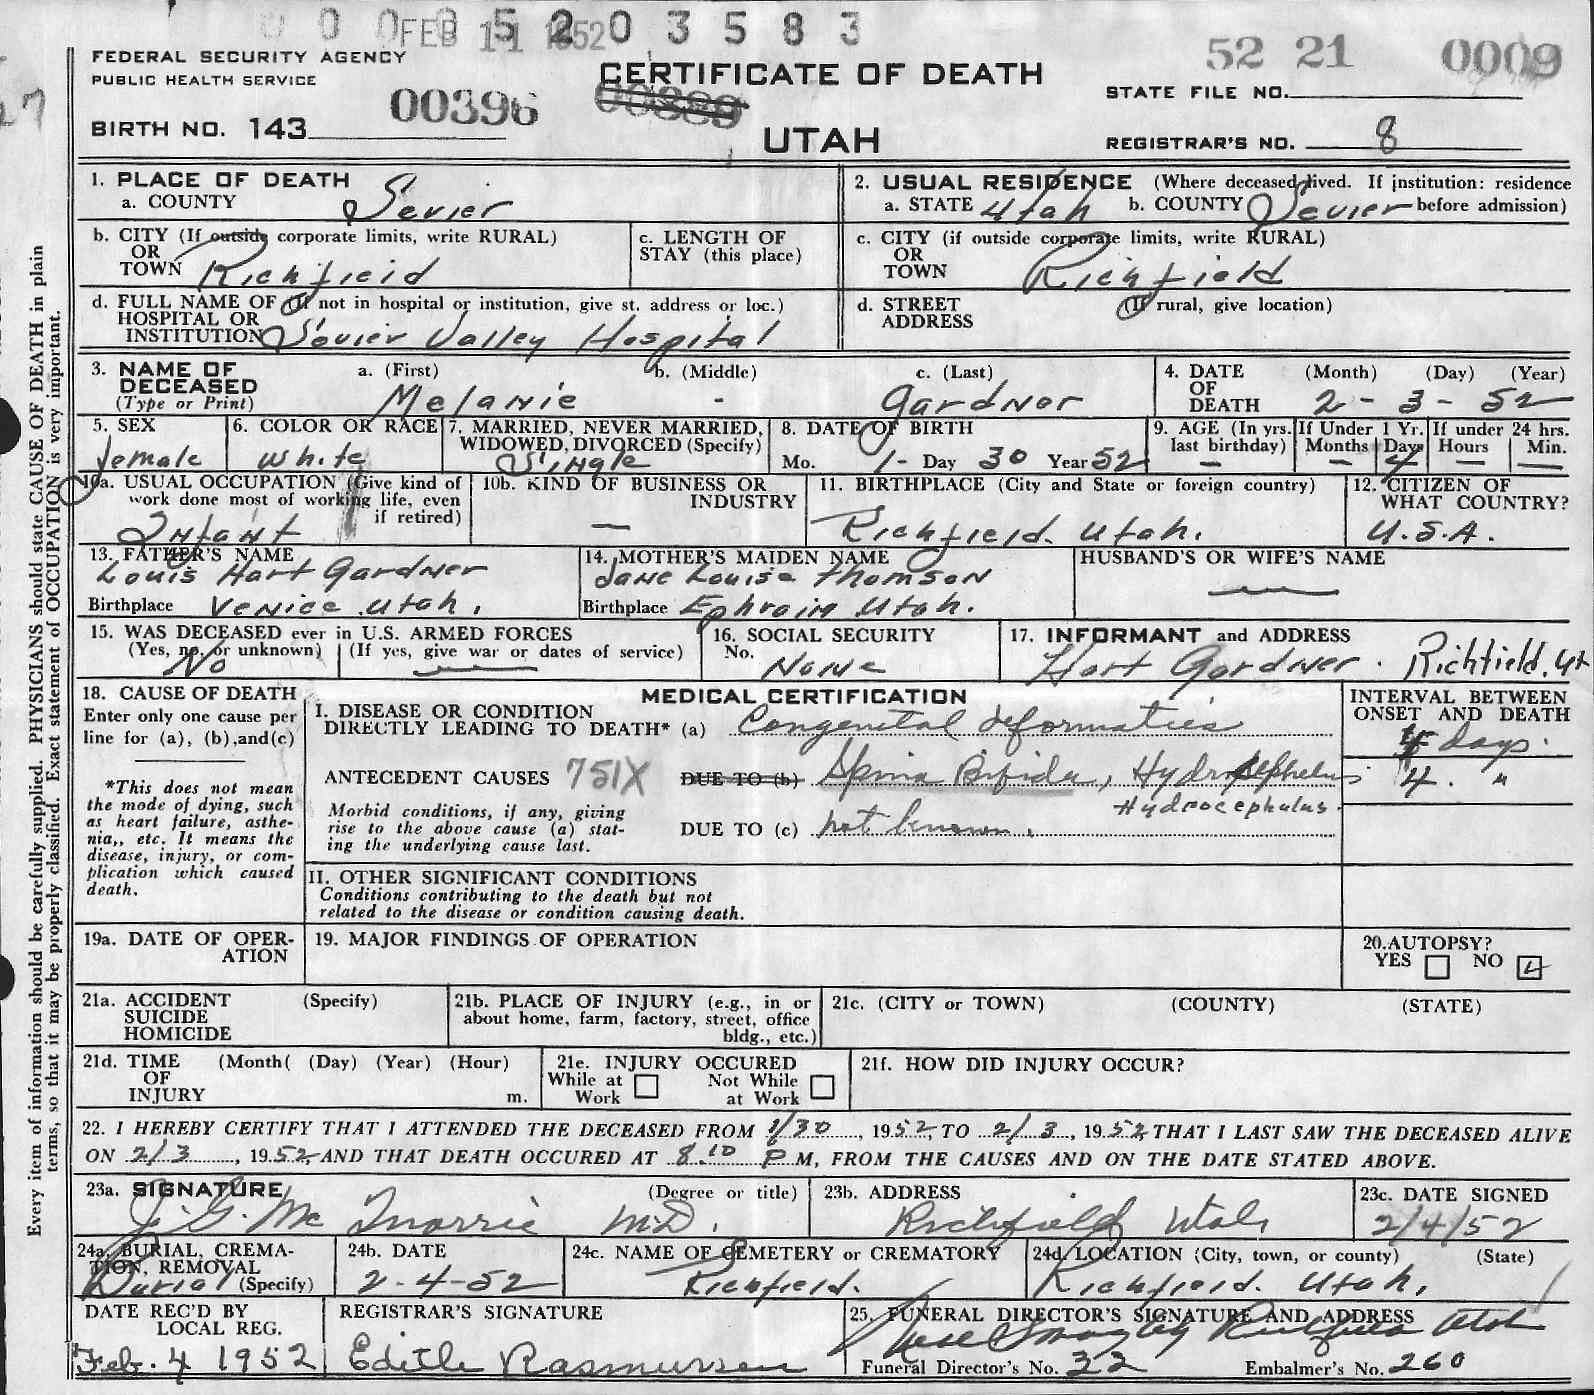 0 0 0 0 5 2 0 3 5 8 3
FEB 11 1952
FEDERAL SECURITY AGENCY
PUBLIC HEALTH SERVICE
CERTIFICATE OF DEATH
52 21 0009
STATE FILE NO.
00396 00389
BIRTH NO. 143
UTAH
REGISTRAR'S NO. 8
27
Every item of information should be carefully supplied. PHYSICIANS should state CAUSE OF DEATH in plain
terms, so that it may be properly classified. Exact statement of OCCUPATION is very important.
1. PLACE OF DEATH
a. COUNTY Sevier
2. USUAL RESIDENCE (Where deceased lived. If institution: residence
a. STATE Utah b. COUNTY Sevier before admission)
b. CITY (If outside corporate limits, write RURAL)
OR
TOWN Richfield
c. LENGTH OF
STAY (this place)
c. CITY (if outside corporate limits, write RURAL)
OR
TOWN Richfield
d. FULL NAME OF (If not in hospital or institution, give st. address or loc.)
HOSPITAL OR
INSTITUTION Sevier Valley Hospital
d. STREET (If rural, give location)
ADDRESS
3. NAME OF a. (First) b. (Middle) c. (Last)
DECEASED
(Type or Print) Melanie - Gardner
4. DATE (Month) (Day) (Year)
OF
DEATH 2 - 3 - 52
5. SEX
female
6. COLOR OR RACE
White
7. MARRIED, NEVER MARRIED,
WIDOWED, DIVORCED (Specify)
Single
8. DATE OF BIRTH
Mo. 1 - Day 30 Year 52
9. AGE (In yrs. last birthday) —
If Under 1 Yr.
Months — Days 4
If under 24 hrs.
Hours — Min. —
10a. USUAL OCCUPATION (Give kind of
work done most of working life, even
if retired)
Infant
10b. KIND OF BUSINESS OR
INDUSTRY
—
11. BIRTHPLACE (City and State or foreign country)
Richfield. Utah.
12. CITIZEN OF
WHAT COUNTRY?
U.S.A.
13. FATHER'S NAME
Louis Hart Gardner
Birthplace Venice Utah.
14. MOTHER'S MAIDEN NAME
Jane Louise Thomson
Birthplace Ephraim Utah.
HUSBAND'S OR WIFE'S NAME
—
15. WAS DECEASED ever in U.S. ARMED FORCES
(Yes, no, or unknown) (If yes, give war or dates of service)
No —
16. SOCIAL SECURITY
No. None
17. INFORMANT and ADDRESS
Hart Gardner. Richfield, Ut
18. CAUSE OF DEATH
Enter only one cause per
line for (a), (b), and (c)
*This does not mean
the mode of dying, such
as heart failure, asthe-
nia,, etc. It means the
disease, injury, or com-
plication which caused
death.
MEDICAL CERTIFICATION
I. DISEASE OR CONDITION
DIRECTLY LEADING TO DEATH* (a) Congenital deformaties
ANTECEDENT CAUSES 751X DUE TO (b) Spina Bifida, Hydrosephelus
Hydrocephalus.
Morbid conditions, if any, giving
rise to the above cause (a) stat-
ing the underlying cause last.
DUE TO (c) not known.
INTERVAL BETWEEN
ONSET AND DEATH
4 days.
4. "
II. OTHER SIGNIFICANT CONDITIONS
Conditions contributing to the death but not
related to the disease or condition causing death.
19a. DATE OF OPER-
ATION
19. MAJOR FINDINGS OF OPERATION
20. AUTOPSY?
YES NO
21a. ACCIDENT (Specify)
SUICIDE
HOMICIDE
21b. PLACE OF INJURY (e.g., in or
about home, farm, factory, street, office
bldg., etc.)
21c. (CITY or TOWN) (COUNTY) (STATE)
21d. TIME (Month( (Day) (Year) (Hour)
OF
INJURY m.
21e. INJURY OCCURED
While at Work Not While at Work
21f. HOW DID INJURY OCCUR?
22. I HEREBY CERTIFY THAT I ATTENDED THE DECEASED FROM 1/30, 1952, TO 2/3, 1952, THAT I LAST SAW THE DECEASED ALIVE
ON 2/3, 1952, AND THAT DEATH OCCURED AT 8:10 P M, FROM THE CAUSES AND ON THE DATE STATED ABOVE.
23a. SIGNATURE (Degree or title)
J. G. Mc M.D.
23b. ADDRESS
Richfield Utah
23c. DATE SIGNED
2/4/52
24a. BURIAL, CREMA-
TION, REMOVAL
Burial (Specify)
24b. DATE
2-4-52
24c. NAME OF CEMETERY or CREMATORY
Richfield.
24d. LOCATION (City, town, or county) (State)
Richfield. Utah.
DATE REC'D BY
LOCAL REG.
Feb. 4 1952
REGISTRAR'S SIGNATURE
Edith Rasmussen
25. FUNERAL DIRECTOR'S SIGNATURE AND ADDRESS
Richfield Utah
Funeral Director's No. 32 Embalmer's No. 260